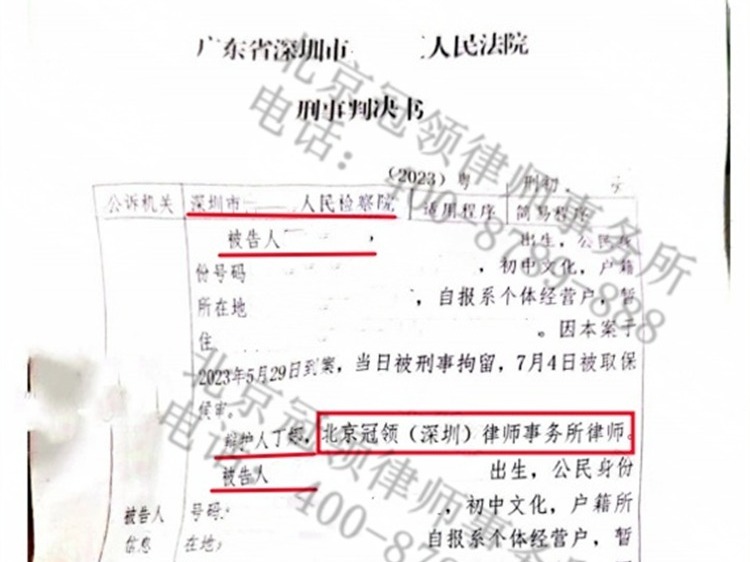 广东省深圳市 人民法院
刑事判决书
(2023)粤 刑初 号
公诉机关 深圳市 人民检察院 适用程序 简易程序
被告人 , 出生，公民身
份号码 ，初中文化，户籍
所在地 ，自报系个体经营户，暂
住 。因本案于
2023年5月29日到案，当日被刑事拘留，7月4日被取保
候审。
辩护人丁娜，北京冠领（深圳）律师事务所律师。
被告人 出生，公民身份
被告人 号码: ，初中文化，户籍所
信息 在地: 自报系个体经营户，暂
北京冠领律师事务所
电话：400-8789-888
北京冠领律师事务所
电话：400-8789-888